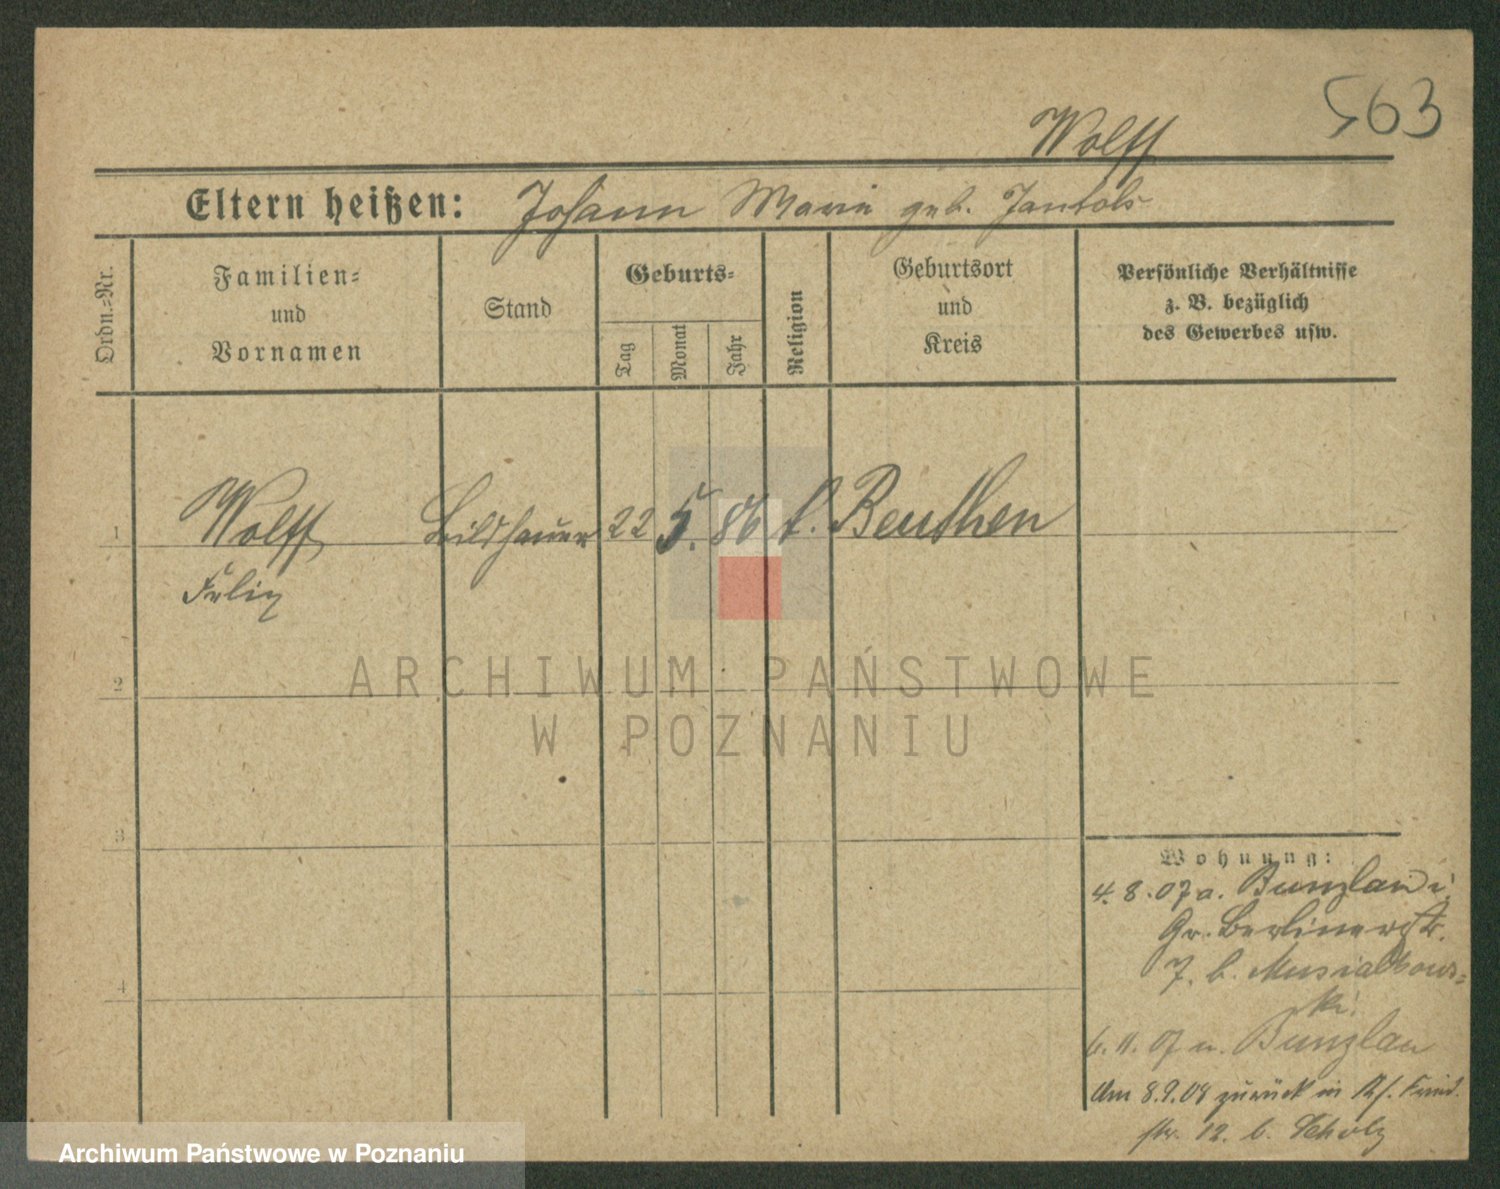 563
Wolff
Eltern heißen: Johann Marie geb.
Ordn.-Nr.
Familien-
und
Vornamen
Stand
Geburts-
Tag
Monat
Jahr
Religion
Geburtsort
und
Kreis
Persönliche Verhältnisse
z. B. bezüglich
des Gewerbes usw.
1 Wolff Bildhauer 22 5. 86 k. Beuthen
Felix
2
ARCHIWUM PAŃSTWOWE
W POZNANIU
3
Wohnung:
4. 8. 07 a. Bunzlau
Gr. Berlinerstr.
7. b. Musialkows-
ki
4
6. 11. 07 n. Bunzlau
Am 8.9.09 zurück in
str. 12. b. Scholz
Archiwum Państwowe w Poznaniu